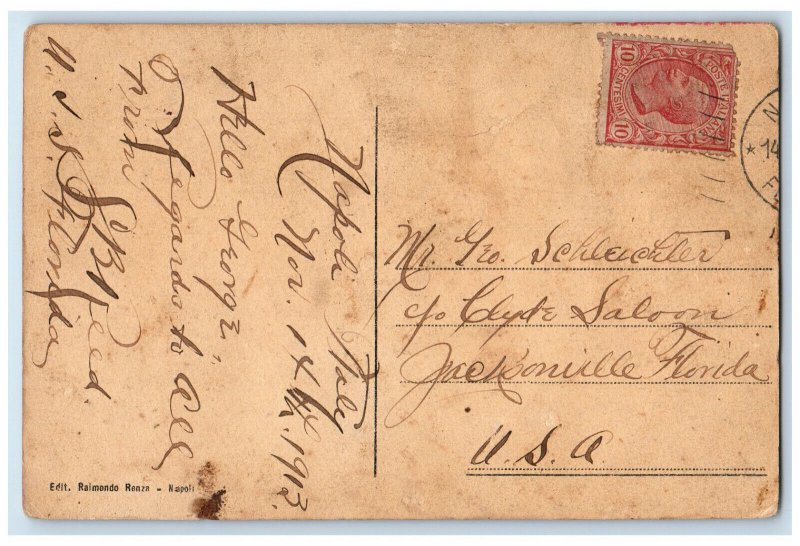 Napoli Italy
Nov. 14th 1913.
Hello George,
Regards to all
From
U.S.S. Florida
Mr. Geo. Schleichter
c/o Clyde Saloon
Jacksonville Florida
U.S.A.
Edit. Raimondo Renza - Napoli
POSTE ITALIANE
10 CENTESIMI 10
N
*14